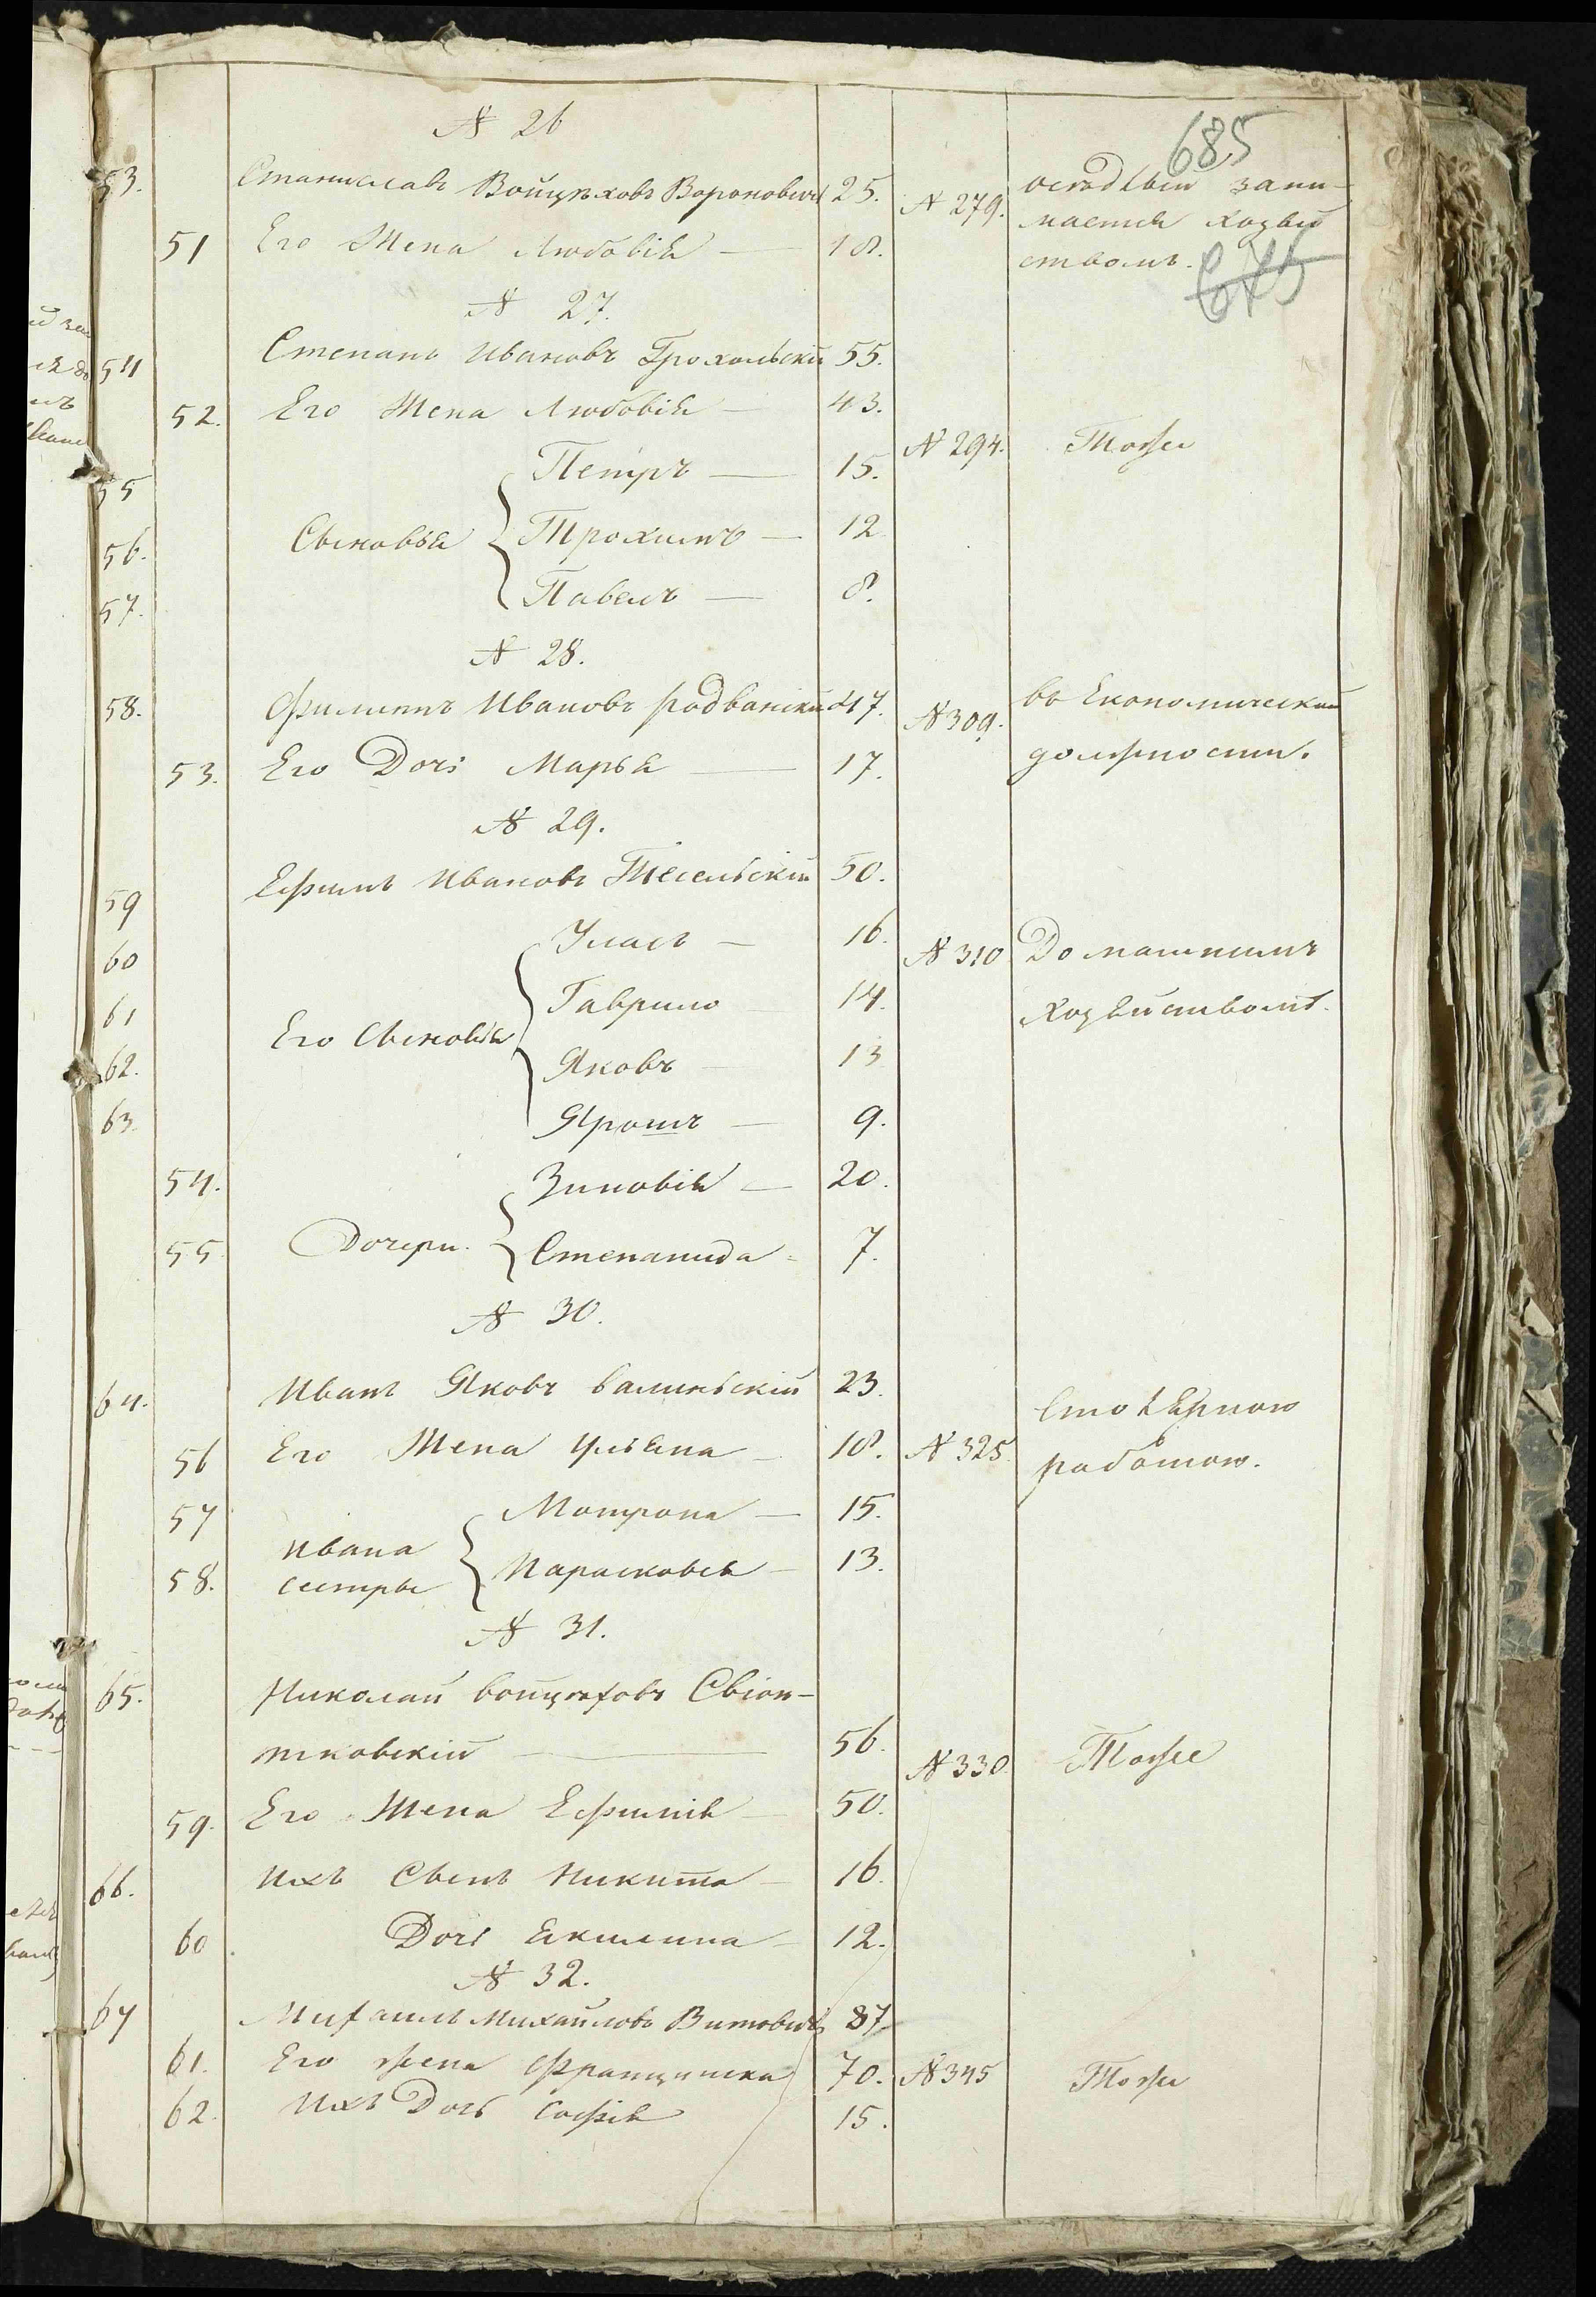 685
№ 26
53. Станиславъ Войцѣховъ Вороновичъ 25. № 279. осѣдлый зани-
мается хозяй
51 Его Жена Любовія — 18. ствомъ.
675
№ 27.
54 Степанъ Ивановъ Грохольскій 55.
52. Его Жена Любовія — 43.
№ 294. Тоже
55 Петръ — 15.
56. Сыновья Трохимъ — 12
57. Павелъ — 8.
№ 28.
58. Филиппъ Ивановъ Радванскій 47. № 309. въ Економической
53. Его Дочь Марья — 17. должности.
№ 29.
59 Ефимъ Ивановъ Тесельскій 50.
60 Уласъ — 16. № 310 Домашнимъ
61 Гаврило 14. хозяйствомъ.
Его Сыновья
62. Яковъ — 13
63. Ярошъ — 9.
54. Зиновія — 20.
55 Дочери. Степанида - 7.
№ 30.
64. Иванъ Яковъ Валиньскій 23. Столярною
56 Его Жена Ульяна - 18. № 325. работою.
57 Мотрона — 15.
Ивана
58. сестры Парасковья - 13.
№ 31.
65. Николай Войцѣховъ Свіон-
тковскій — 56. № 330. Тоже
59. Его Жена Ефимія — 50.
66. Ихъ Сынъ Никита - 16.
60 Дочь Екилина - 12.
№ 32.
67 Михаилъ Михайловъ Витовичъ 87.
61. Его жена Францишка 70. № 345 Тоже
62. Ихъ Дочь Софія 15.